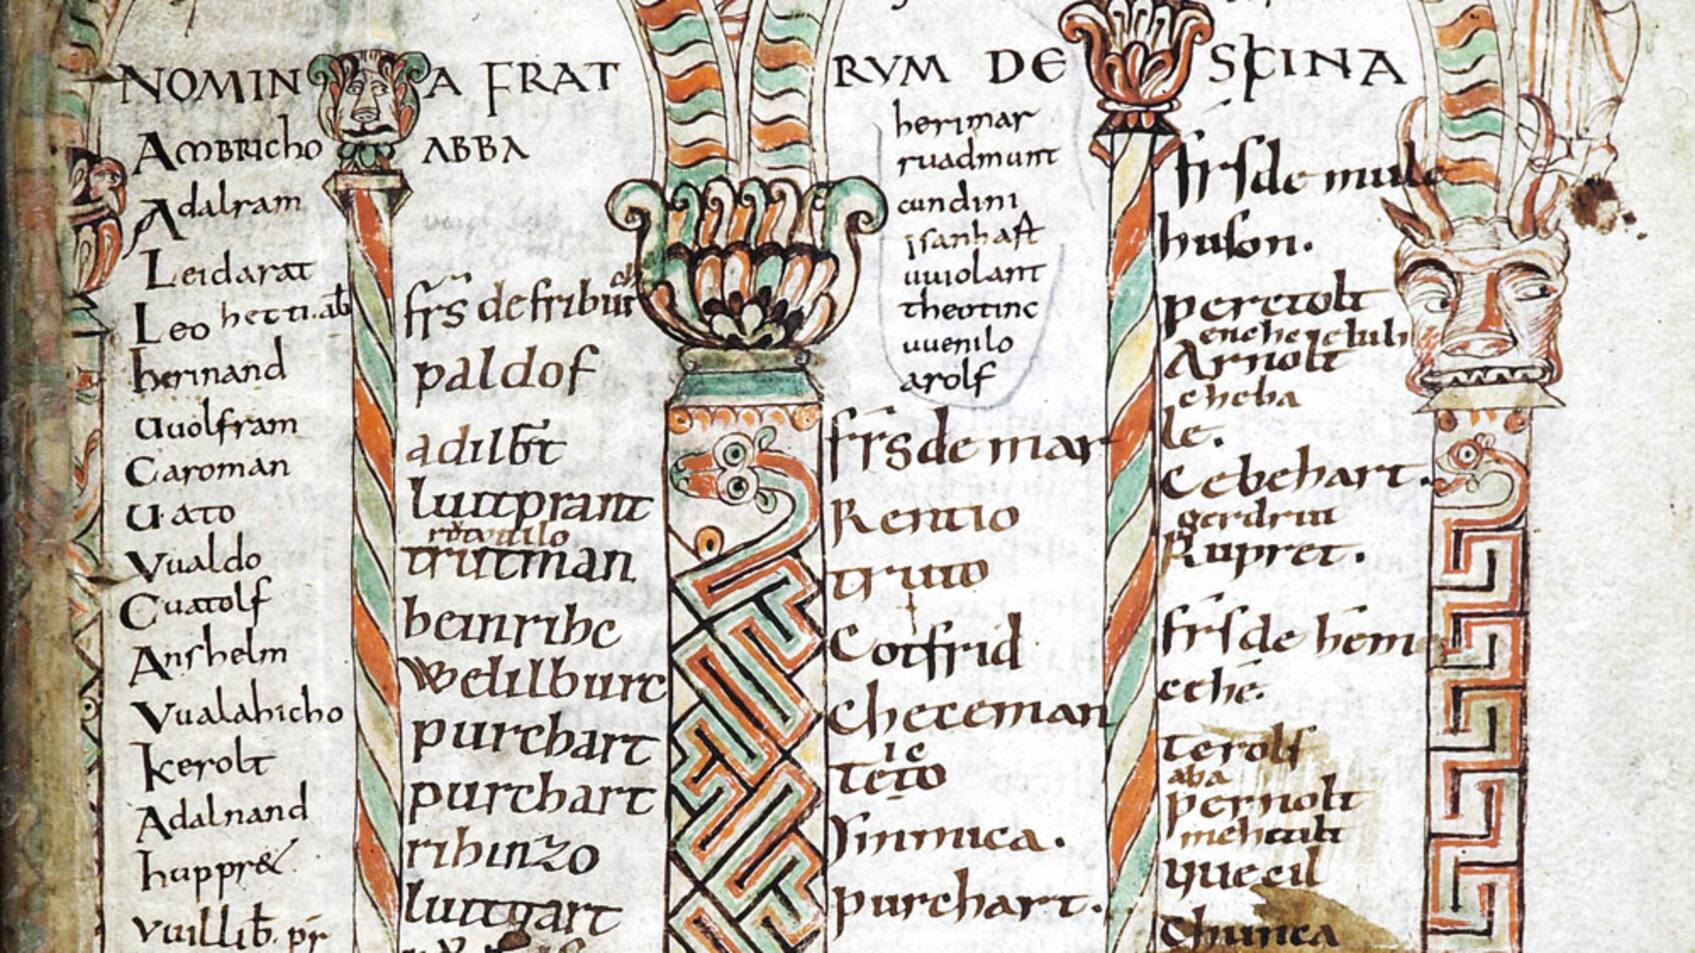 NOMINA FRATRVM DE SCINA
Ambricho ABBA
Adalram
Leidarat
Leo hetti.ab
herinand
uuolfram
Caroman
uato
Vualdo
Cuatolf
Anshelm
Vualahicho
kerolt
Adalnand
huppr&
vuillib. pr
frs defriburch
paldof
adilbt
luitprant
trutman
heinrihc
Wehlburc
purchart
purchart
rihinzo
luitgart
herimar
ruadmunt
cundini
isanhaft
uuiolant
theotinc
uuenilo
arolf
frs de mar
Rentio
truto
Cotfrid
checeman
teto
Sinnuca.
purchart.
frs de mule
huson.
perctolt
Arnolt
cheba
le.
Cebehart.
gerdrut
Rupret.
frs de heim
eche.
terolf
aba
pernolt
mehtilt
Thunca